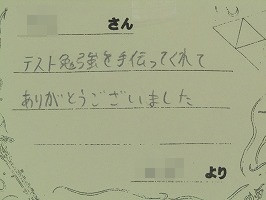 さん
テスト勉強を手伝ってくれて
ありがとうございました
より